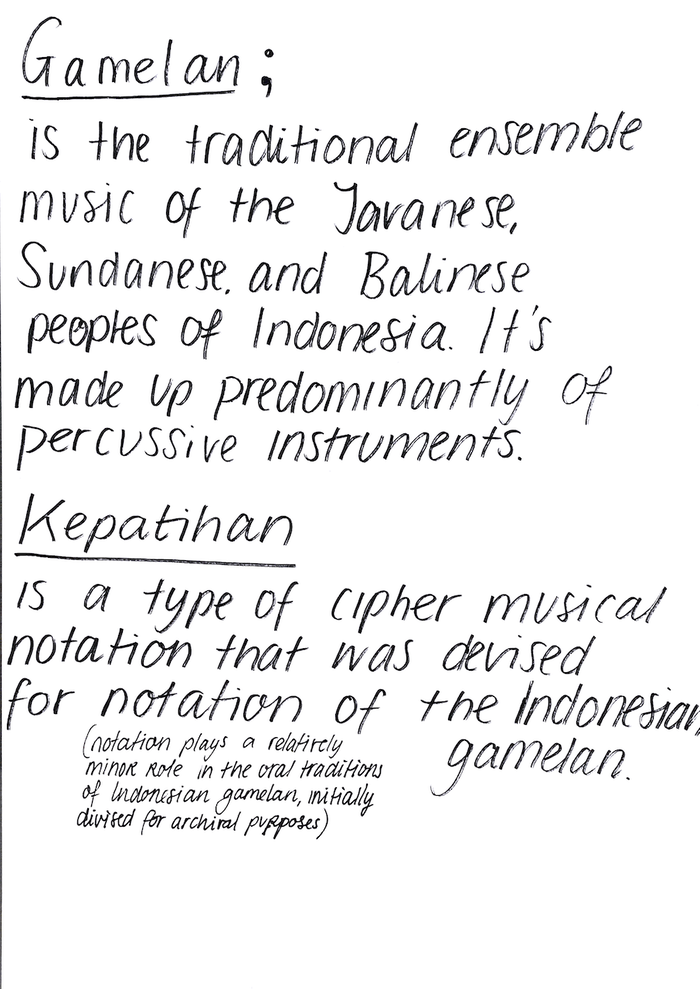 Gamelan ;
is the traditional ensemble
music of the Javanese,
Sundanese, and Balinese
peoples of Indonesia. It's
made up predominantly of
percussive instruments.
Kepatihan
is a type of cipher musical
notation that was devised
for notation of the Indonesian
gamelan.
(notation plays a relatively
minor role in the oral traditions
of Indonesian gamelan, initially
divised for archival purposes)